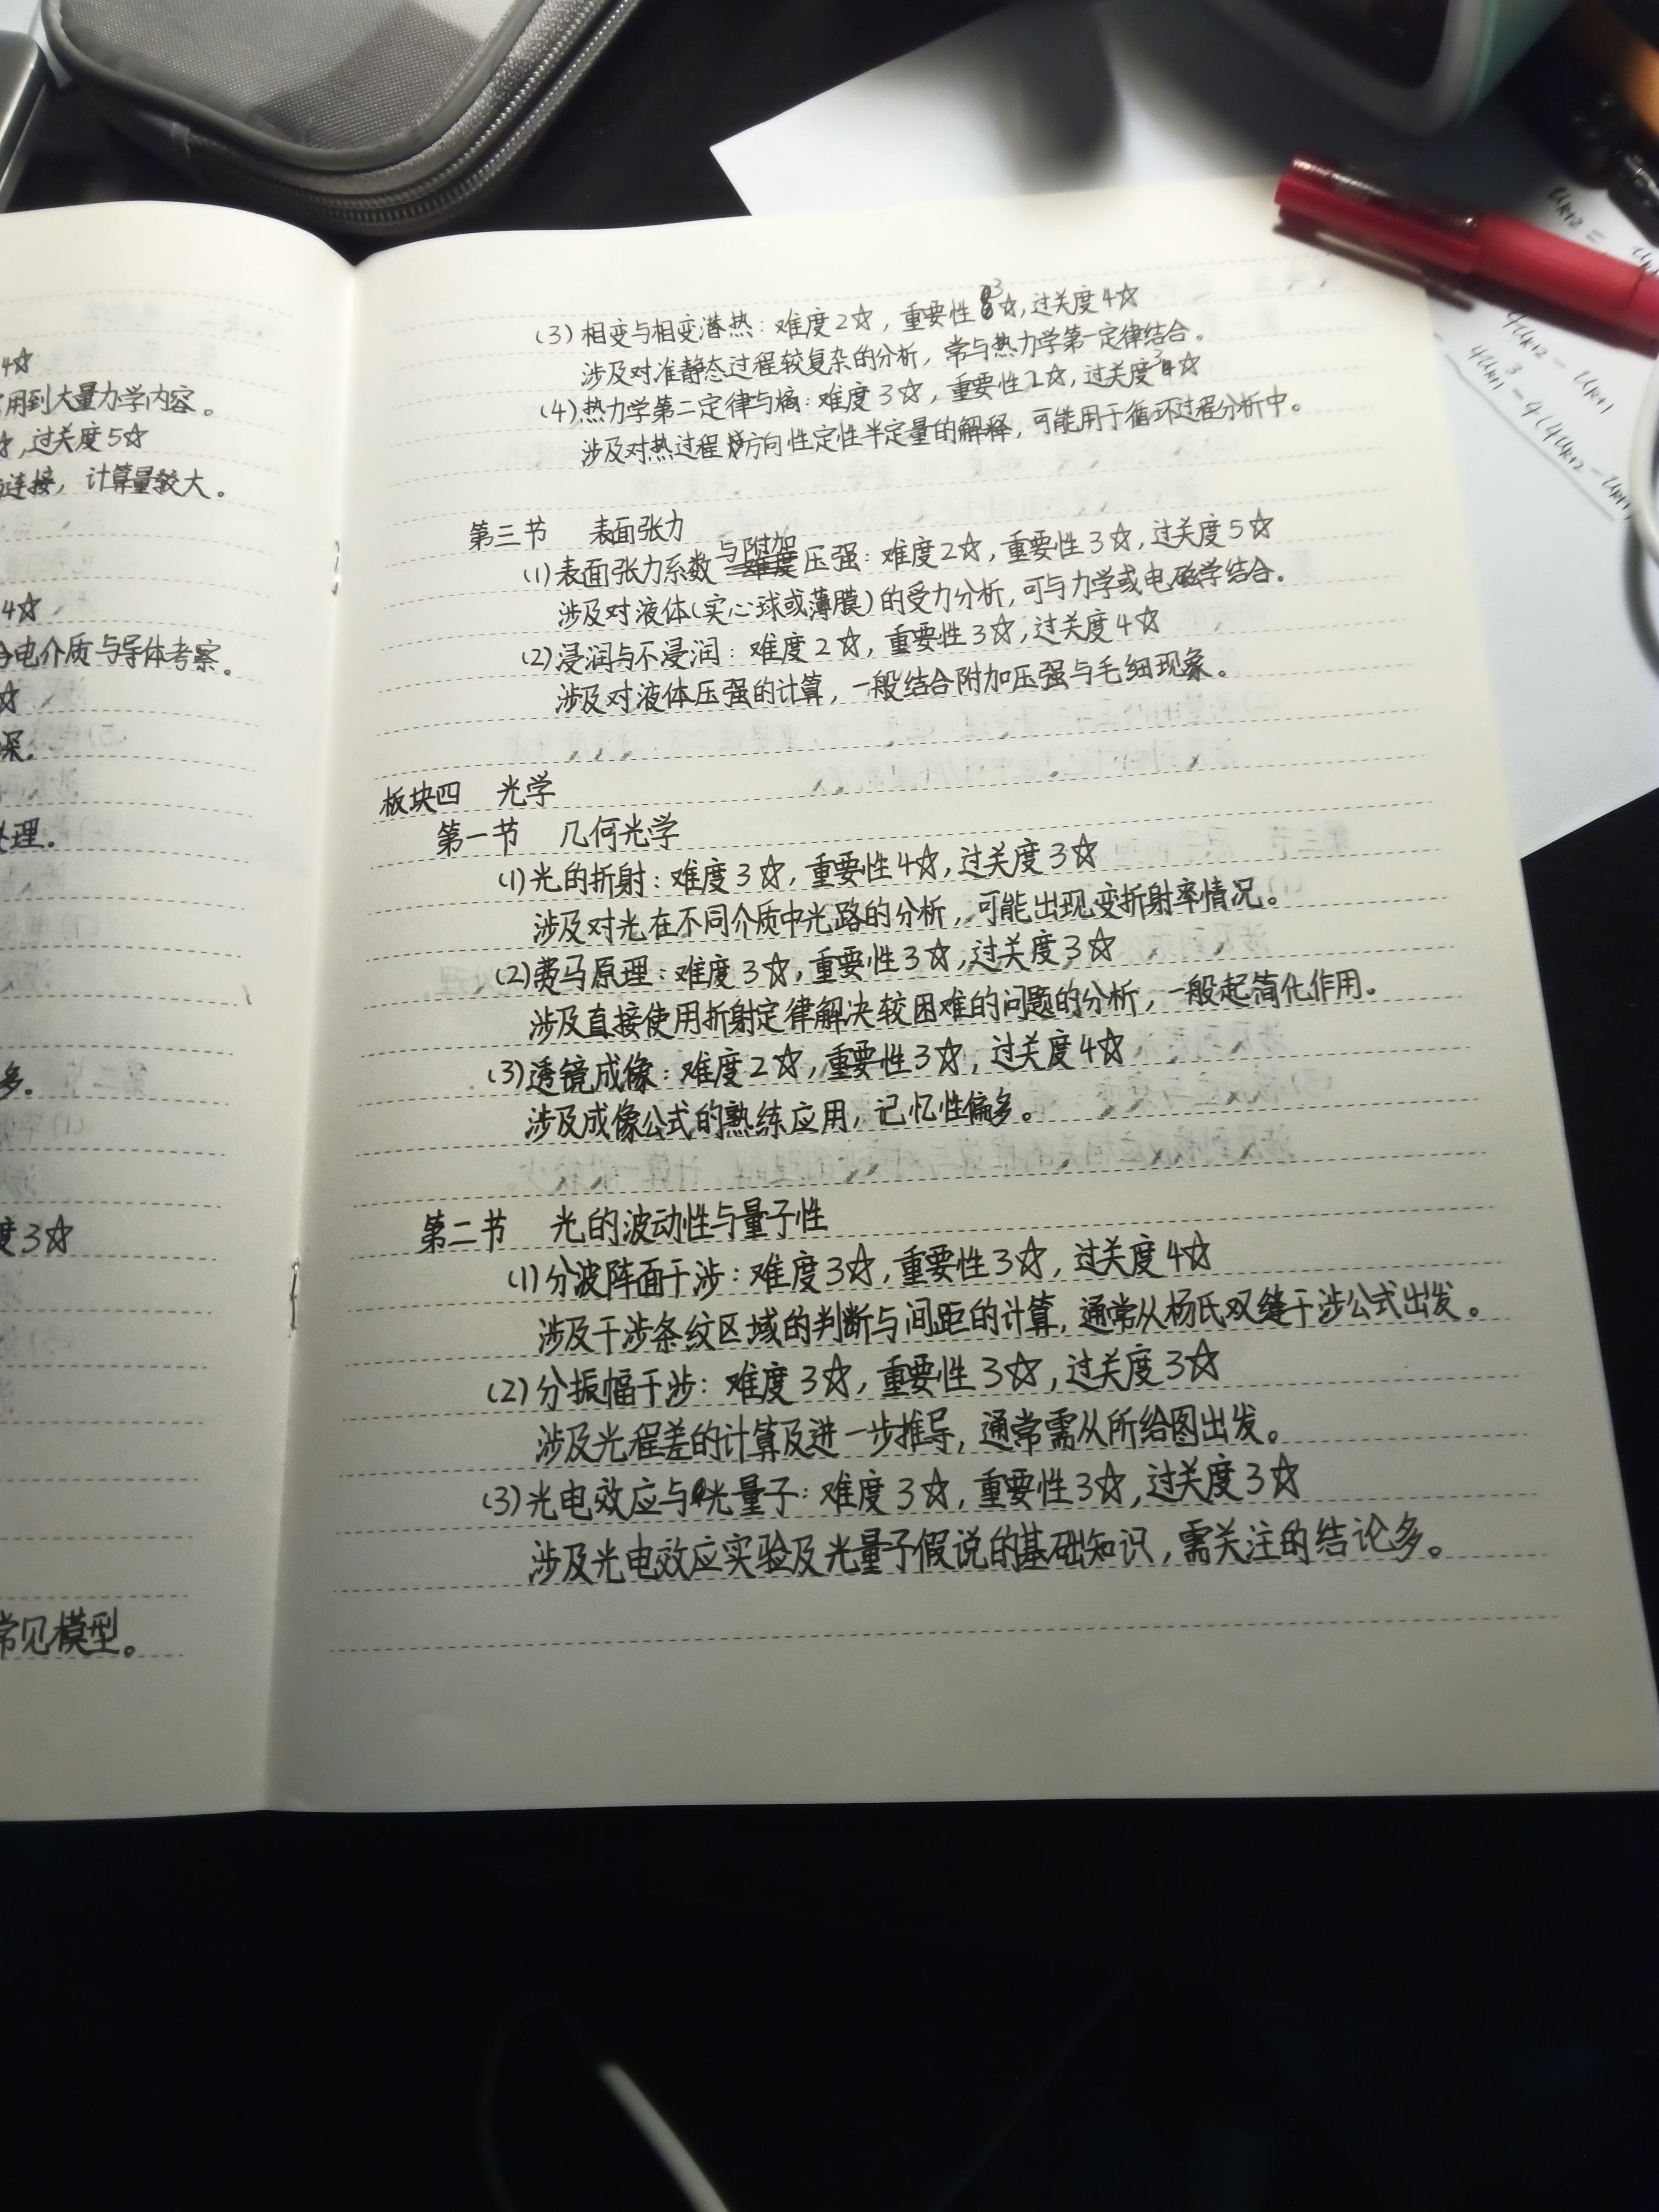 4☆
用到大量力学内容。
☆,过关度5☆
连接,计算量较大。
4☆
电介质与导体考察。
☆
深。
处理。
多。
度3☆
常见模型。
(3)相变与相变潜热:难度2☆,重要性3☆,过关度4☆
涉及对准静态过程较复杂的分析,常与热力学第一定律结合。
(4)热力学第二定律与熵:难度3☆,重要性2☆,过关度3☆
涉及对热过程方向性定性半定量的解释,可能用于循环过程分析中。
第三节 表面张力
(1)表面张力系数与附加压强:难度2☆,重要性3☆,过关度5☆
涉及对液体(实心球或薄膜)的受力分析,可与力学或电磁学结合。
(2)浸润与不浸润:难度2☆,重要性3☆,过关度4☆
涉及对液体压强的计算,一般结合附加压强与毛细现象。
板块四 光学
第一节 几何光学
(1)光的折射:难度3☆,重要性4☆,过关度3☆
涉及对光在不同介质中光路的分析,可能出现变折射率情况。
(2)费马原理:难度3☆,重要性3☆,过关度3☆
涉及直接使用折射定律解决较困难的问题的分析,一般起简化作用。
(3)透镜成像:难度2☆,重要性3☆,过关度4☆
涉及成像公式的熟练应用,记忆性偏多。
第二节 光的波动性与量子性
(1)分波阵面干涉:难度3☆,重要性3☆,过关度4☆
涉及干涉条纹区域的判断与间距的计算,通常从杨氏双缝干涉公式出发。
(2)分振幅干涉:难度3☆,重要性3☆,过关度3☆
涉及光程差的计算及进一步推导,通常需从所给图出发。
(3)光电效应与光量子:难度3☆,重要性3☆,过关度3☆
涉及光电效应实验及光量子假说的基础知识,需关注的结论多。